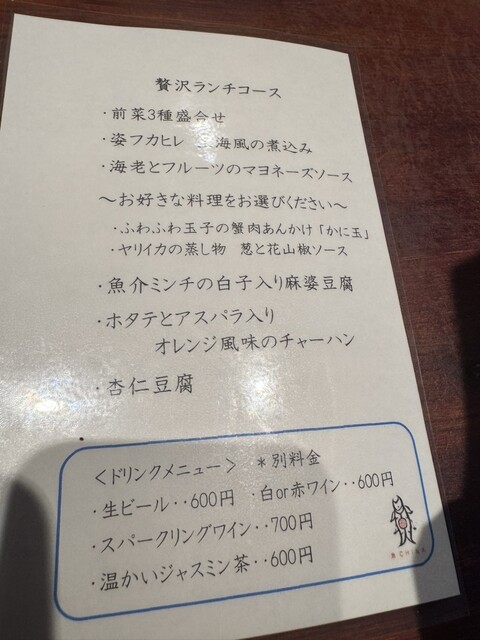 贅沢ランチコース
・前菜3種盛合せ
・姿フカヒレ 海風の煮込み
・海老とフルーツのマヨネーズソース
～お好きな料理をお選びください～
・ふわふわ玉子の蟹肉あんかけ「かに玉」
・ヤリイカの蒸し物 葱と花山椒ソース
・魚介ミンチの白子入り麻婆豆腐
・ホタテとアスパラ入り
オレンジ風味のチャーハン
・杏仁豆腐
＜ドリンクメニュー＞ ＊別料金
・生ビール・・600円 ・白or赤ワイン・・600円
・スパークリングワイン・・700円
・温かいジャスミン茶・・600円